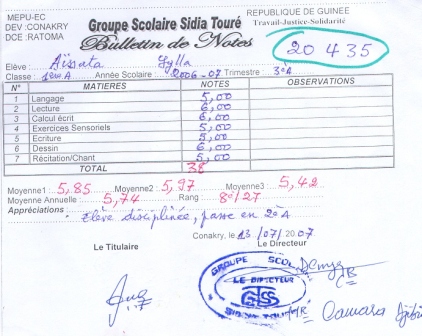 MEPU-EC
DEV :CONAKRY
DCE :RATOMA
Groupe Scolaire Sidia Touré
Bulletin de Notes
REPUBLIQUE DE GUINEE
Travail-Justice-Solidarité
20 435
Elève : Aïssata Sylla
Classe : 1ère A Année Scolaire : 2006-07 Trimestre : 3è
N° MATIERES NOTES OBSERVATIONS
1 Langage 5,00
2 Lecture 6,00
3 Calcul écrit 6,00
4 Exercices Sensoriels 5,00
5 Ecriture 5,00
6 Dessin 6,00
7 Récitation/Chant 5,00
TOTAL 38
Moyenne1 : 5,85 Moyenne2 : 5,97 Moyenne3 : 5,42
Moyenne Annuelle : 5,74 Rang : 8è/27
Appréciations :
Elève disciplinée, passe en 2è A
Conakry, le 13/07/2007
Le Titulaire Le Directeur
GROUPE SCOL
LE DIRECTEUR
GSST
SIDIA TOU
Camara